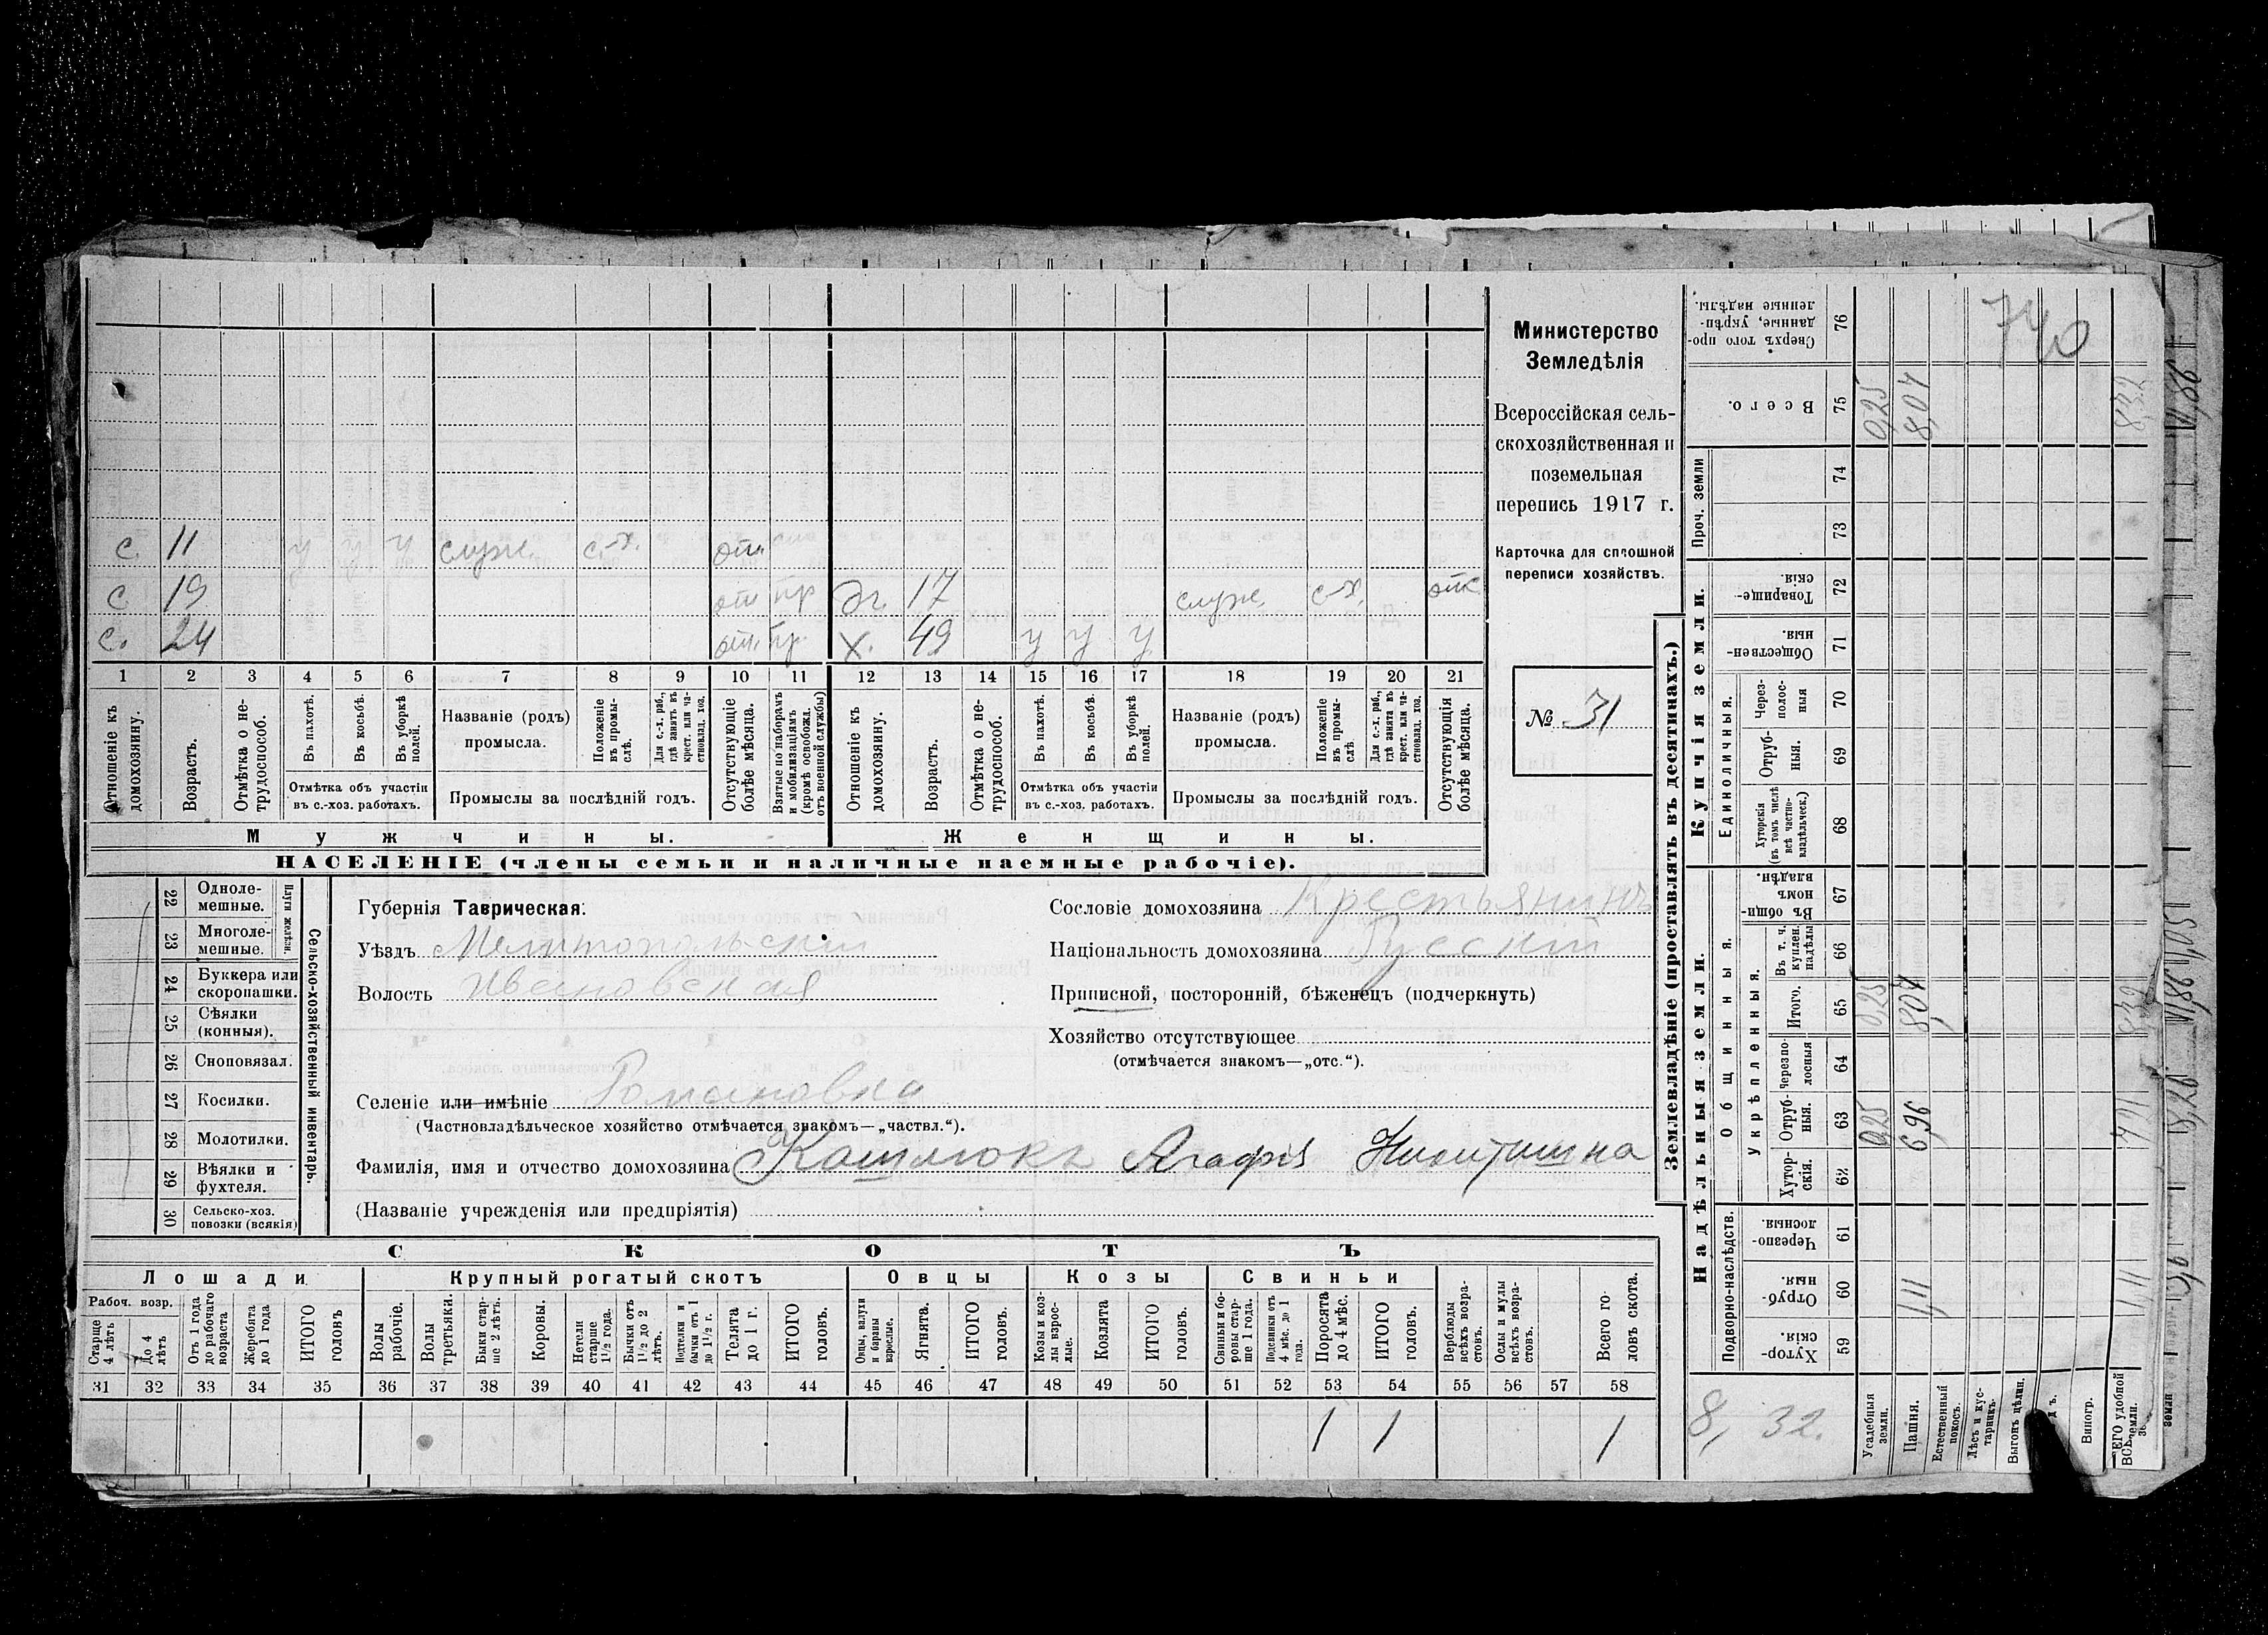 с. 11 у у у служ. с.-х. отп.
с 19 отп пр дч. 17 служ. с-х. отс.
с. 24 отп. пр. х. 49 у у у
1 2 3 4 5 6 7 8 9 10 11 12 13 14 15 16 17 18 19 20 21
Отношеніе къ домохозяину.
Возрастъ.
Отмѣтка о не-
трудоспособ.
Въ пахотѣ.
Въ косьбѣ.
Въ уборкѣ полей.
Отмѣтка объ участіи
въ с.-хоз. работахъ.
Названіе (родъ)
промысла.
Положеніе
въ промы-
слѣ.
Для с.-х. раб.,
гдѣ занятъ въ
крест. или ча-
стновлад. хоз.
Промыслы за послѣдній годъ.
Отсутствующіе
болѣе мѣсяца.
Взятые по наборамъ
и мобилизаціямъ
(кромѣ освобожд.
отъ военной службы)
Отношеніе къ
домохозяину.
Возрастъ.
Отмѣтка о не-
трудоспособ.
Въ пахотѣ.
Въ косьбѣ.
Въ уборкѣ
полей.
Отмѣтка объ участіи
въ с.-хоз. работахъ.
Названіе (родъ)
промысла.
Положеніе
въ промы-
слѣ.
Для с.-х. раб.,
гдѣ занята въ
крест. или ча-
стновлад. хоз.
Промыслы за послѣдній годъ.
Отсутствующія
болѣе мѣсяца.
Мужчины.
Женщины.
НАСЕЛЕНІЕ (члены семьи и наличные наемные рабочіе).
Министерство
Земледѣлія
Всероссійская сель-
скохозяйственная и
поземельная
перепись 1917 г.
Карточка для сплошной
переписи хозяйствъ.
№ 31
22 Одноле-
мешные.
23 Многоле-
мешные.
Плуги желѣзн.
24 Буккера или
скоропашки.
25 Сѣялки
(конныя).
26 Сноповязал.
27 Косилки.
28 Молотилки.
29 Вѣялки и
фухтеля.
30 Сельско-хоз.
повозки (всякія)
Сельско-хозяйственный инвентарь.
Губернія Таврическая.
Уѣздъ Мелитопольскій
Волость Ивановская
Сословіе домохозяина Крестьянинъ
Національность домохозяина Русскій
Приписной, посторонній, бѣженецъ (подчеркнуть)
Хозяйство отсутствующее
(отмѣчается знакомъ—„отс.“).
Селеніе или имѣніе Романовка
(Частновладѣльческое хозяйство отмѣчается знакомъ—„частвл.“).
Фамилія, имя и отчество домохозяина Кошлюкъ Агафія Никитишна
(Названіе учрежденія или предпріятія)
СКОТЪ
Лошади
Крупный рогатый скотъ
Овцы
Козы
Свиньи
Рабоч. возр.
Старше
4 лѣтъ
До 4
лѣтъ
Отъ 1 года
до рабочаго
возраста
Жеребята
до 1 года
ИТОГО
головъ
Волы
рабочіе.
Волы
третьяки.
Быки стар-
ше 2 лѣтъ.
Коровы.
Нетели
старше
1½ года.
Бычки отъ
1½ до 2
лѣтъ.
Подтелки и
бычки отъ 1
до 1½ г.
Телята
до 1 г.
ИТОГО
головъ.
Овцы, валухи
и бараны
взрослые.
Ягнята.
ИТОГО
головъ.
Козы и коз-
лы взрос-
лые.
Козлята
ИТОГО
головъ.
Свиньи и бо-
ровы стар-
ше 1 года.
Подсвинки отъ
4 мѣс. до 1
года.
Поросята
до 4 мѣс.
ИТОГО
головъ.
Верблюды
всѣхъ возра-
стовъ.
Ослы и мулы
всѣхъ возра-
стовъ.
Всего го-
ловъ скота.
31 32 33 34 35 36 37 38 39 40 41 42 43 44 45 46 47 48 49 50 51 52 53 54 55 56 57 58
1 1 1
Землевладѣніе (проставлять въ десятинахъ.)
Купчія земли.
Надѣльныя земли.
Сверхъ того про-
данные, укрѣп-
ленные надѣлы.
76
740
Всего.
75 0,25 8,07 8,32
Проч. земли
74
73
Товарище-
скія.
72
Обществен-
ныя.
71
Единоличныя.
Через-
полос-
ныя
70
Отруб-
ныя.
69
Хуторскія
(въ томъ числѣ
всѣ частно-
владѣльческ.)
68
Общинныя.
Въ общи-
номъ
владѣн.
67
Укрѣпленныя.
Въ т. ч.
куплен.
надѣлы
66
Итого.
65 0,25 8,07 8,32
Черезпо-
лосныя
64
Отруб-
ныя.
63 0,25 6,96
Хутор-
скія.
62
Подворно-наслѣдств.
Черезпо-
лосныя.
61
Отруб-
ныя.
60 1,11 1,11
Хутор-
скія.
59
8,32.
Усадебныя
земли.
Пашня.
Естественный
покосъ.
Лѣсъ и кус-
тарникъ.
Выгонъ цѣлин.
Виногр.